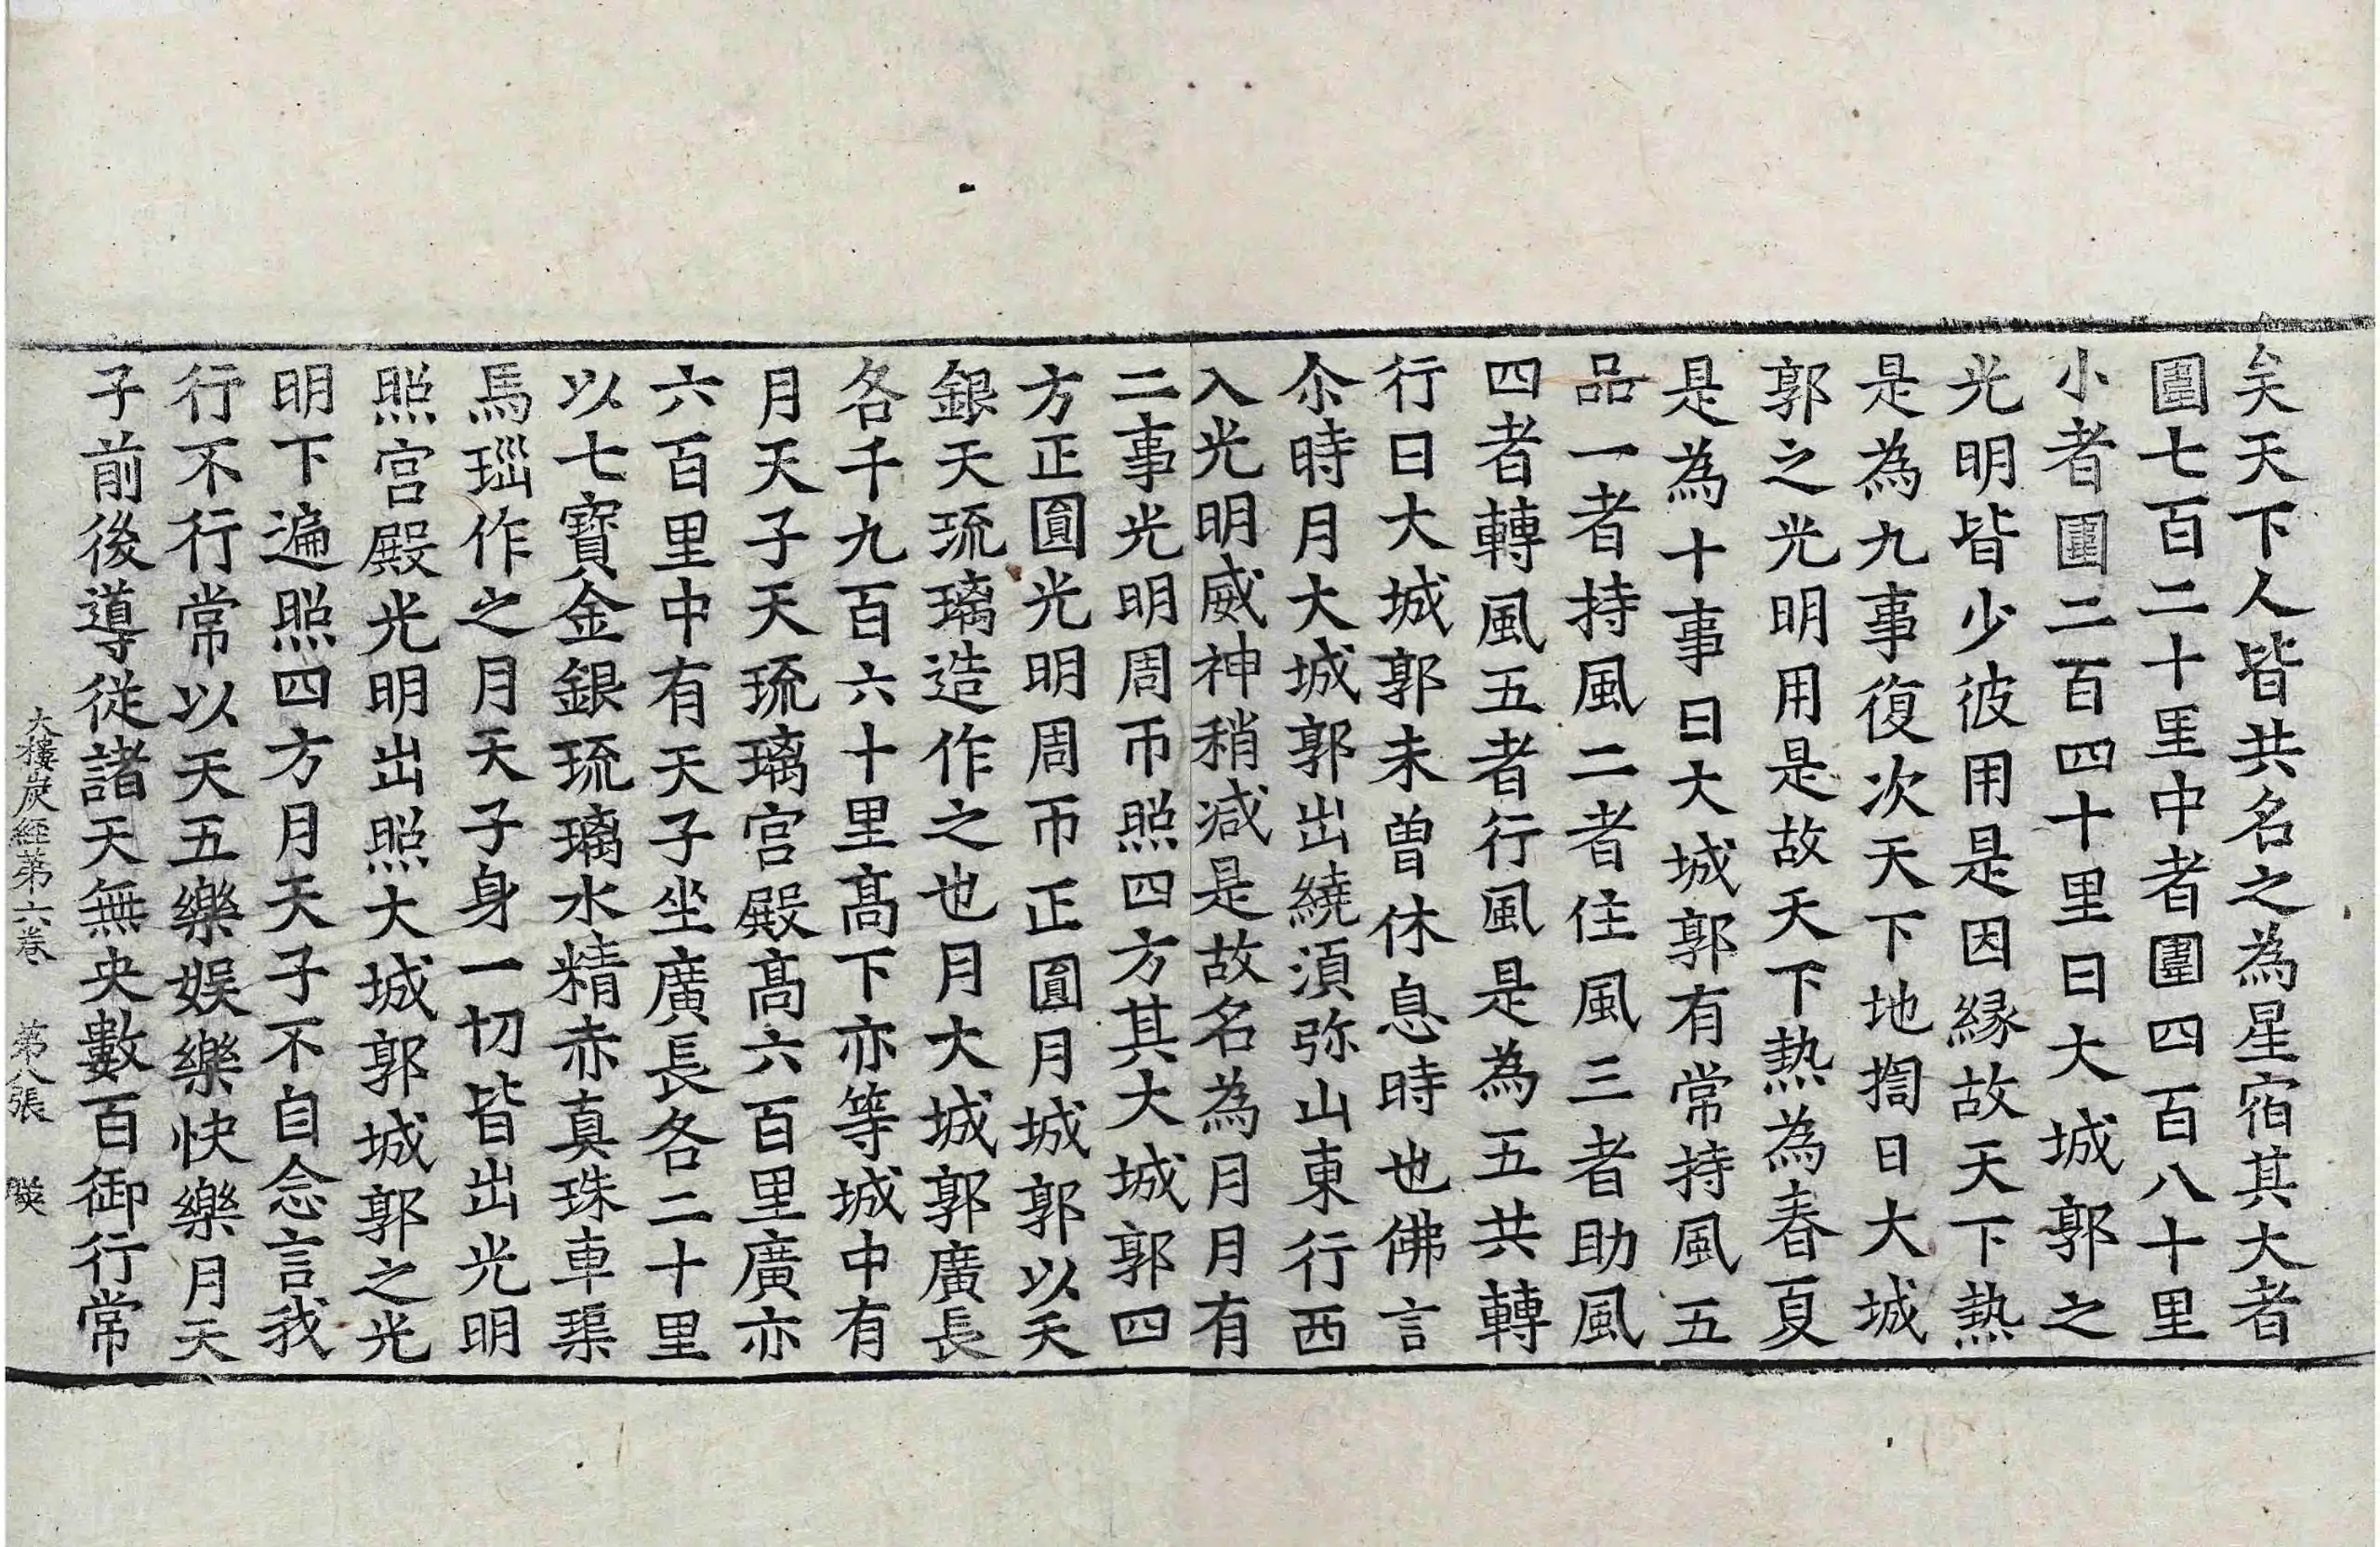 矣天下人皆共名之為星宿其大者
圍七百二十里中者圍四百八十里
小者圍二百四十里日大城郭之
光明皆少彼用是因緣故天下熱
是為九事復次天下地㨔日大城
郭之光明用是故天下熱為春夏
是為十事日大城郭有常持風五
品一者持風二者住風三者助風
四者轉風五者行風是為五共轉
行日大城郭未曾休息時也佛言
尒時月大城郭出繞湏弥山東行西
入光明威神稍減是故名為月月有
二事光明周帀照四方其大城郭四
方正圓光明周帀正圓月城郭以天
銀天琉璃造作之也月大城郭廣長
各千九百六十里高下亦等城中有
月天子天琉璃宮殿高六百里廣亦
六百里中有天子坐廣長各二十里
以七寶金銀琉璃水精赤真珠車𤦲
馬瑙作之月天子身一切皆出光明
照宮殿光明出照大城郭城郭之光
明下遍照四方月天子不自念言我
行不行常以天五樂娛樂快樂月天
子前後導從諸天無央數百御行常
大樓炭經苐六卷 苐八張